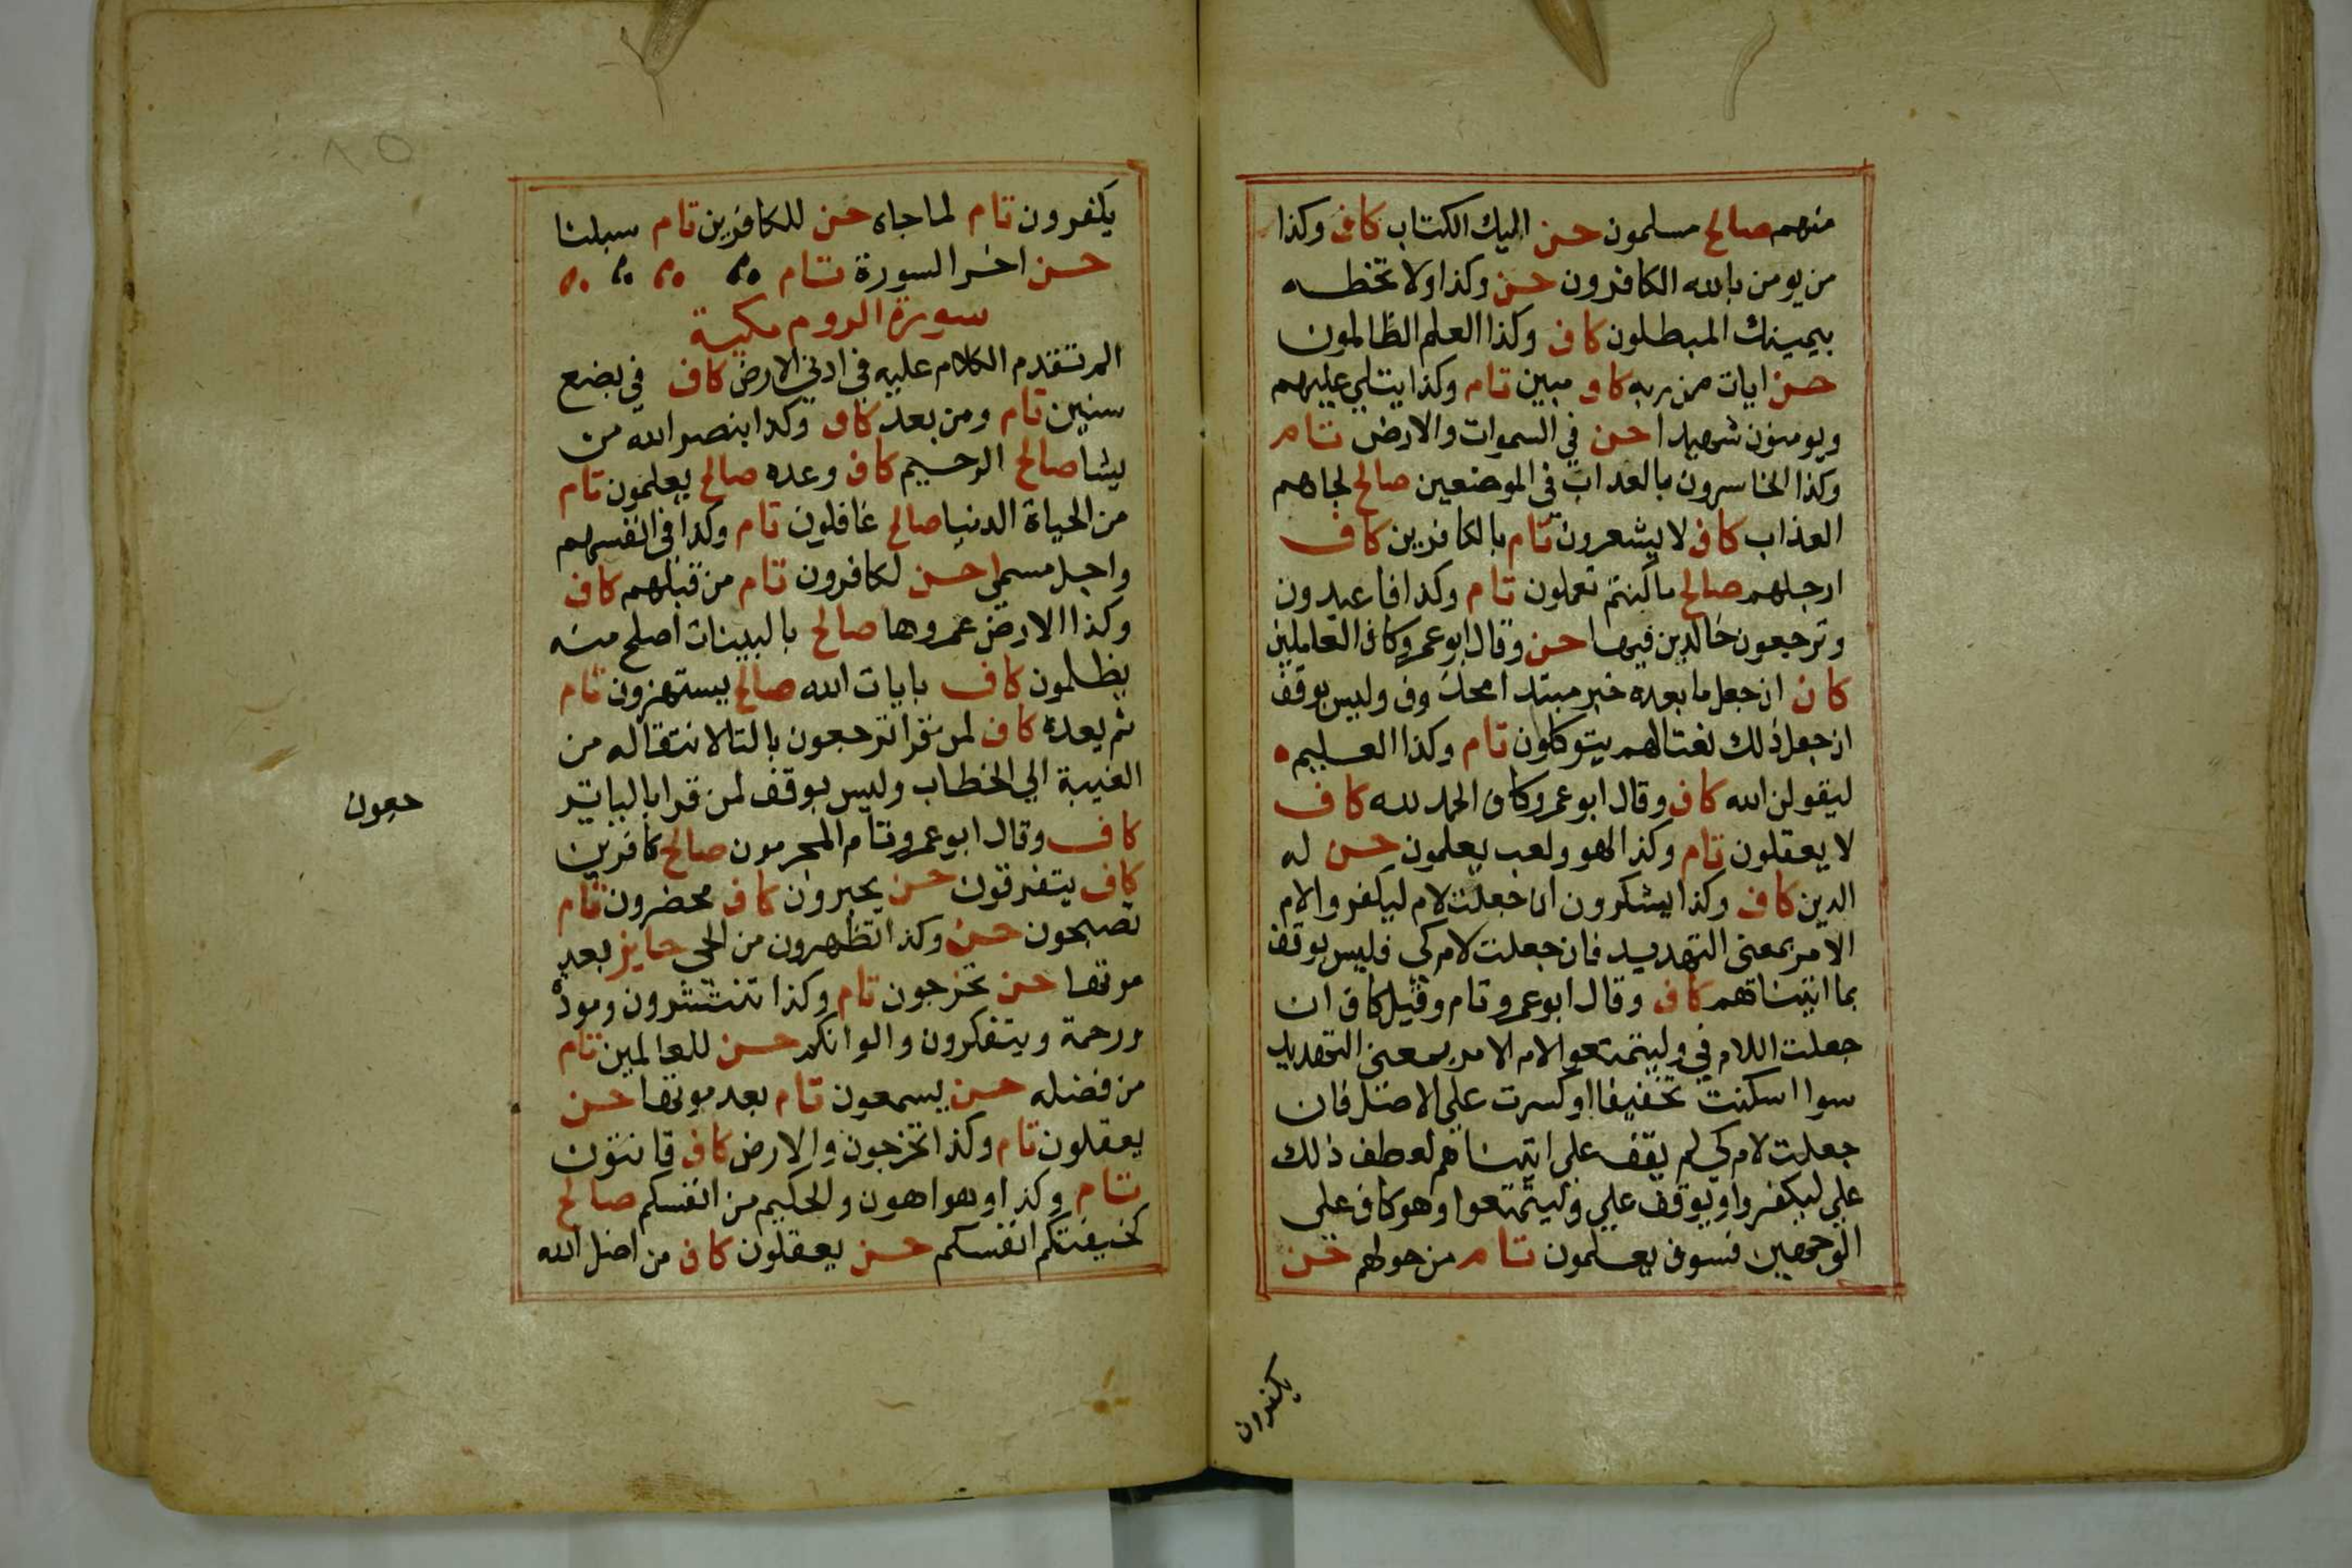 منهم صالح مسلمون حسن اليك الكتاب كاف وكذا
من يومن بالله الكافرون حسن وكذا ولا تخطه
بيمينك المبطلون كاف وكذا العلم الظالمون
حسن ايات من ربه كاف مبين تام وكذا يتلي عليهم
ويومنون شهيدا حسن في السموات والارض تام
وكذا الخاسرون بالعذاب في الموضعين صالح لجاهم
العذاب كاف لا يشعرون تام بالكافرين كاف
ارجلهم صالح ما كنتم تعملون تام وكذا فاعبدون
وترجعون خالدين فيها حسن وقال ابو عمرو كاف العاملين
كاف ان جعل ما بعده خبر مبتدا محذوف وليس بوقف
ان جعل ذلك نعتا لهم يتوكلون تام وكذا العليم ه
ليقولن الله كاف وقال ابو عمرو كاف الحمد لله كاف
لا يعقلون تام وكذا لهو ولعب يعلمون حسن له
الدين كاف وكذا يشكرون ان جعلت لام ليكفروا لام
الامر بمعنى التهديد فان جعلت لام كي فليس بوقف
بما اتيناهم كاف وقال ابو عمرو تام وقيل كاف ان
جعلت اللام في وليتمتعوا لام الامر بمعنى التهديد
سوا اسكنت تخفيفا او كسرت علي الاصل فان
جعلت لام كي لم يقف على اتيناهم لعطف ذلك
علي ليكفروا ويوقف علي وليتمتعوا وهو كاف علي
الوجهين فسوف يعلمون تام من حولهم حسن
يكفرون
يكفرون تام لما جاه حسن للكافرين تام سبلنا
حسن اخر السورة تام
سورة الروم مكية
الم تقدم الكلام عليه في ادني الارض كاف في بضع
سنين تام ومن بعد كاف وكذا بنصر الله من
يشا صالح الرحيم كاف وعده صالح يعلمون تام
من الحياة الدنيا صالح غافلون تام وكذا في انفسهم
واجل مسمي حسن لكافرون تام من قبلهم كاف
وكذا الارض عمروها صالح بالبينات اصلح منه
يظلمون كاف بايات الله صالح يستهزون تام
ثم يعده كاف لمن قرا ترجعون بالتا لانتقاله من
الغيبة الي الخطاب وليس بوقف لمن قرا باليا
كاف وقال ابو عمرو تام المجرمون صالح كافرين
كاف يتفرقون حسن يحبرون كاف محضرون تام
تصبحون حسن وكذا تظهرون من الحي جايز بعد
موتها حسن تخرجون تام وكذا تنتشرون ومودة
ورحمة ويتفكرون والوانكم حسن للعالمين تام
من فضله حسن يسمعون تام بعد موتها حسن
يعقلون تام وكذا تخرجون والارض كاف قانتون
تام وكذا وهو اهون والحكيم من انفسكم صالح
كخيفتكم انفسكم حسن يعقلون كاف من اضل الله